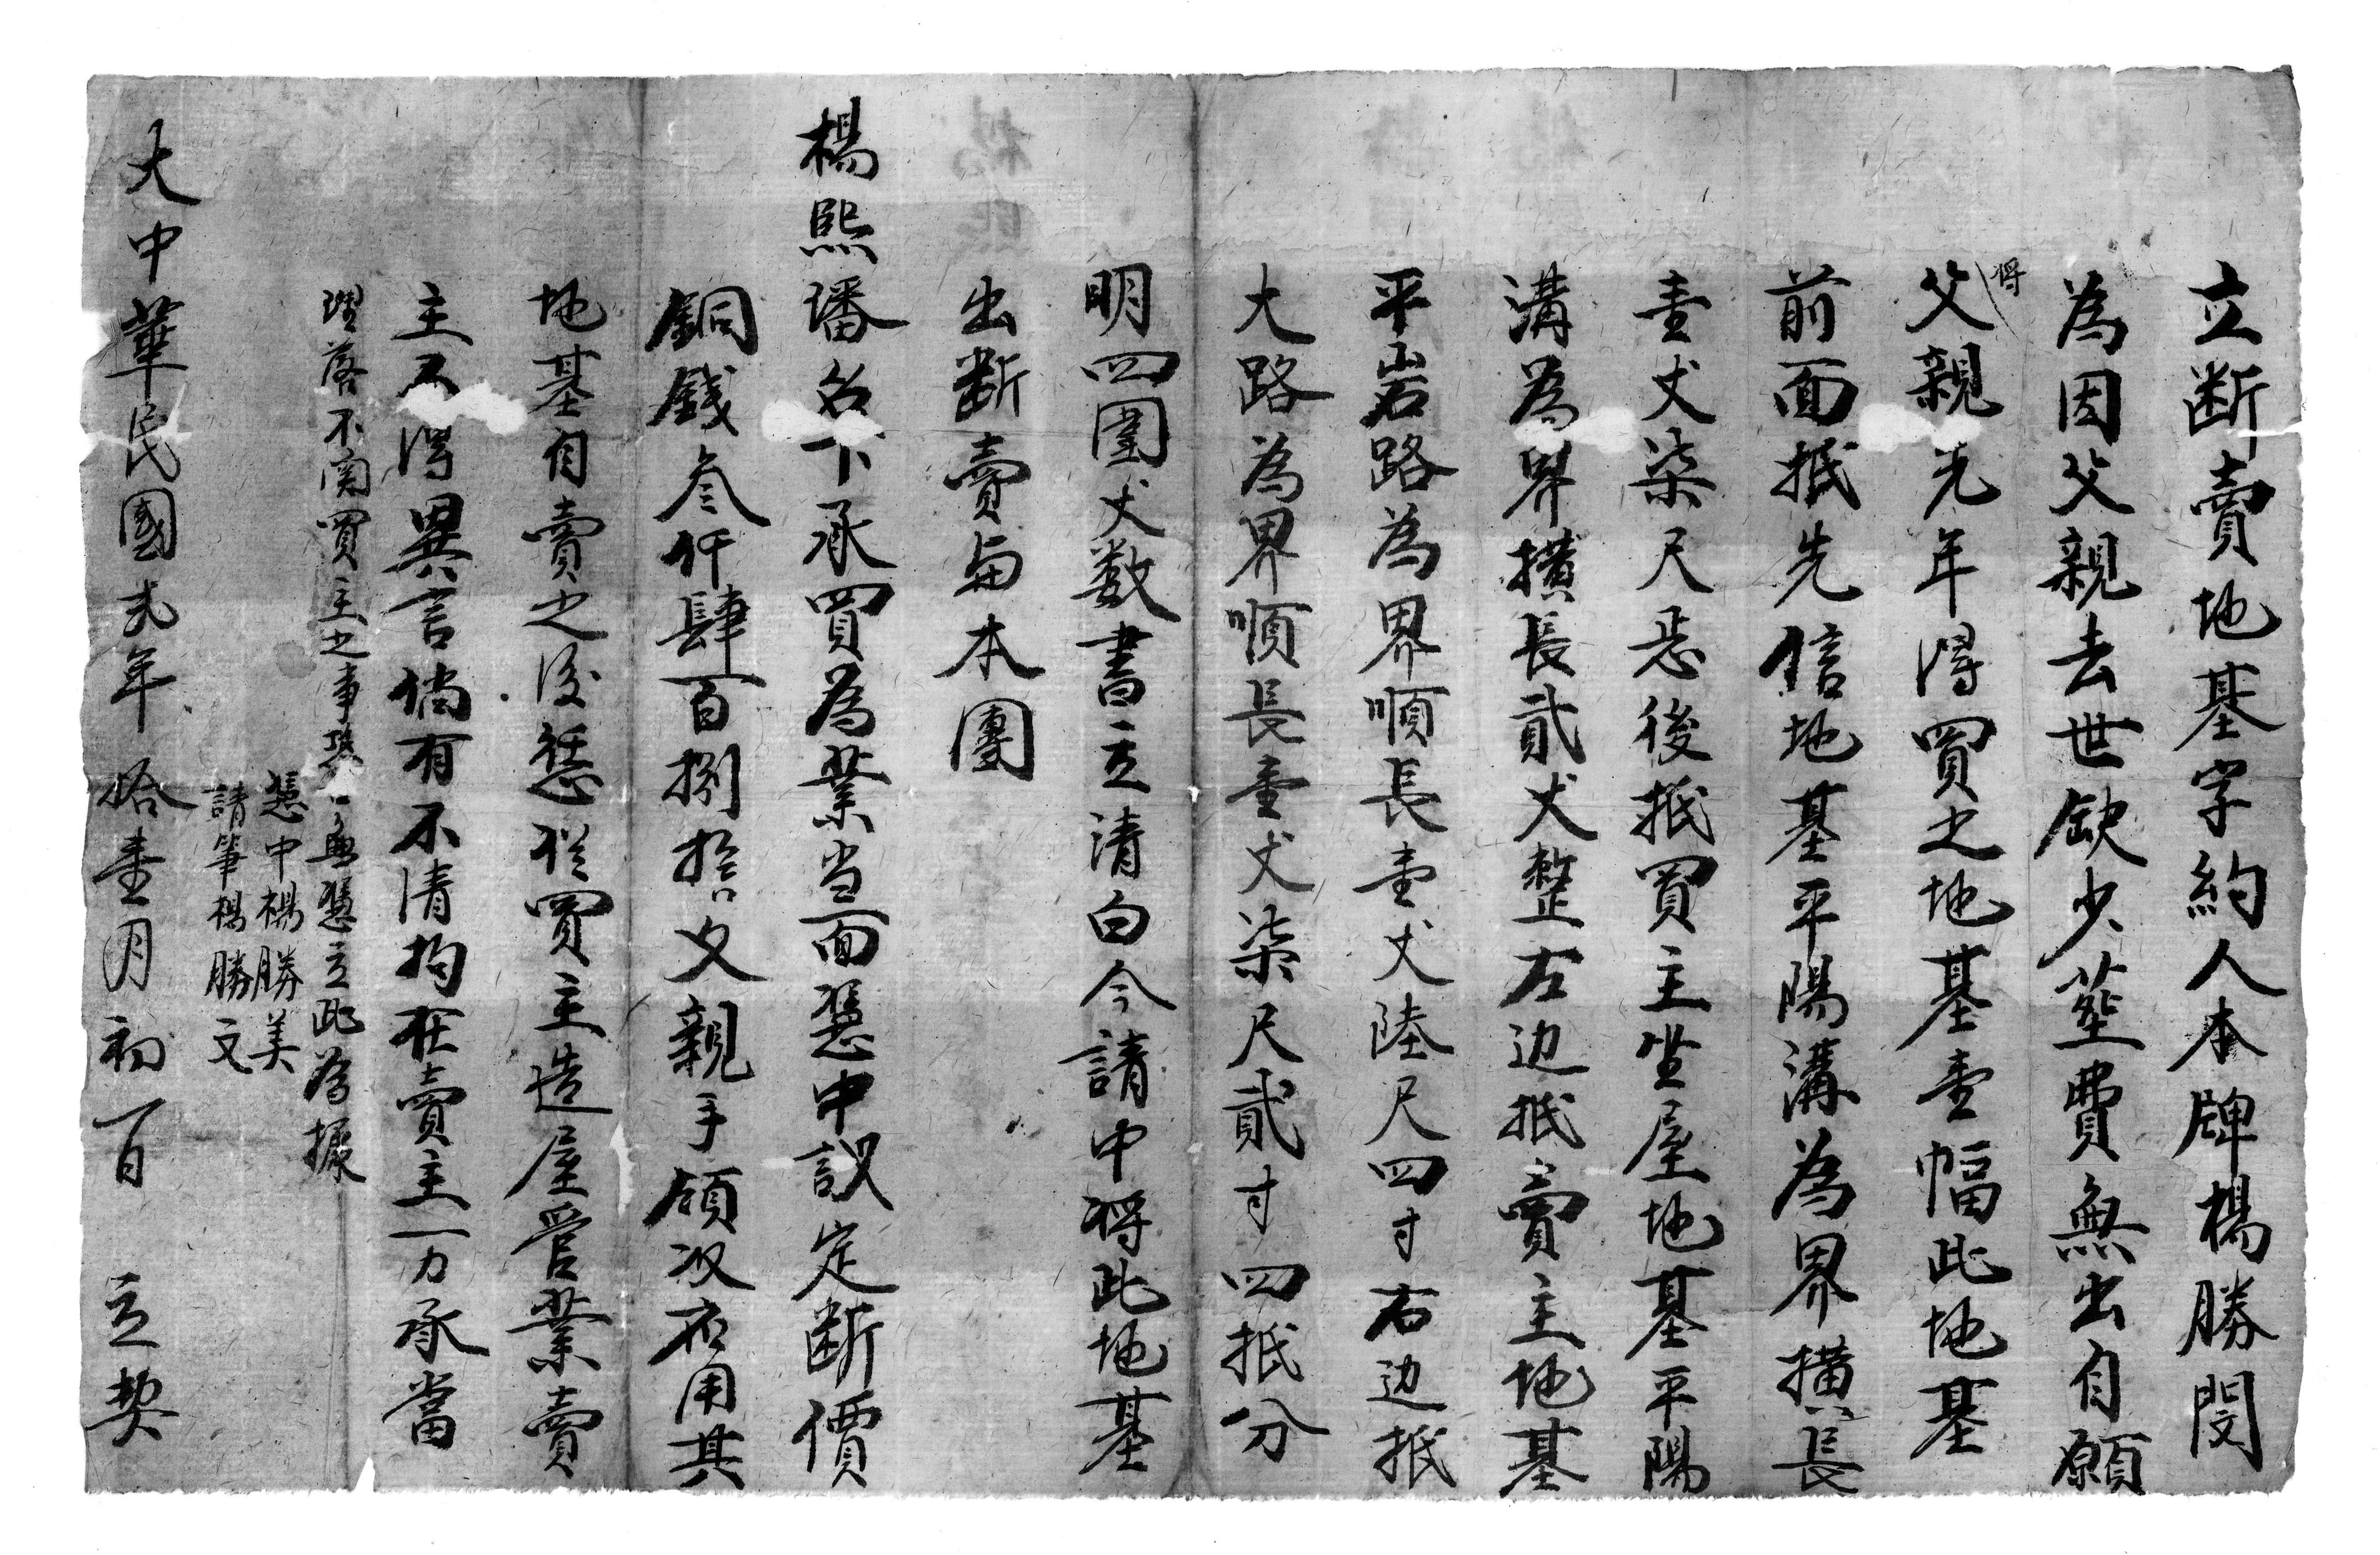 立断賣地基字約人本牌楊勝閔
為因父親去世缺少塟費無出自願
將父親先年得買之地基壹幅此地基
前面抵先信地基平陽溝為界横長
壹丈柒尺恁後抵買主坐屋地基平陽
溝為界横長貳丈整左边抵賣主地基
平岩路為界順長壹丈陸尺四寸右边抵
大路為界順長壹丈柒尺貳寸四抵分
明四圍丈数書立清白今請中將此地基
出断賣与本團
楊熙璠名下承買為業当面憑中議定断價
銅錢叁仟肆百捌拾文親手領収応用其
地基自賣之後恁從買主造屋管業賣
主不得異言倘有不清拘在賣主一力承當
理落不関買主之事恐口無憑立此為據
憑中楊勝美
請筆楊勝文
大中華民國弍年拾壹月初一日 立契